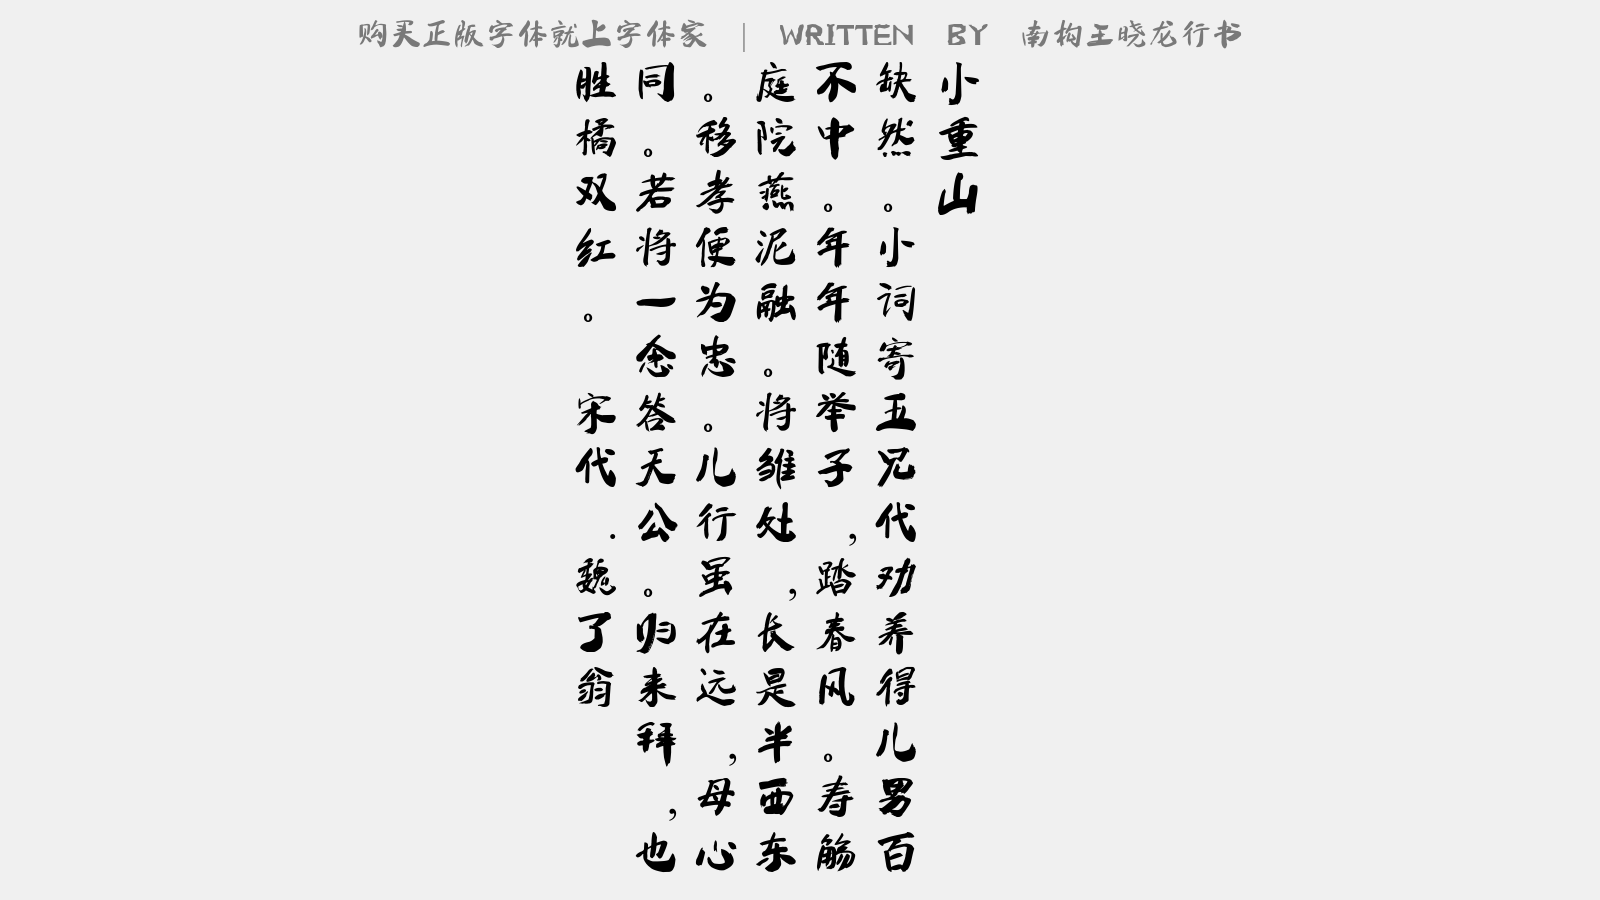 购买正版字体就上字体家 | WRITTEN BY 南构王晓龙行书
小重山
缺然。小词寄五兄代劝养得儿男百
不中。年年随举子,踏春风。寿觞
庭院燕泥融。将雏处,长是半西东
。移孝便为忠。儿行虽在远,母心
同。若将一念答天公。归来拜,也
胜橘双红。 宋代.魏了翁